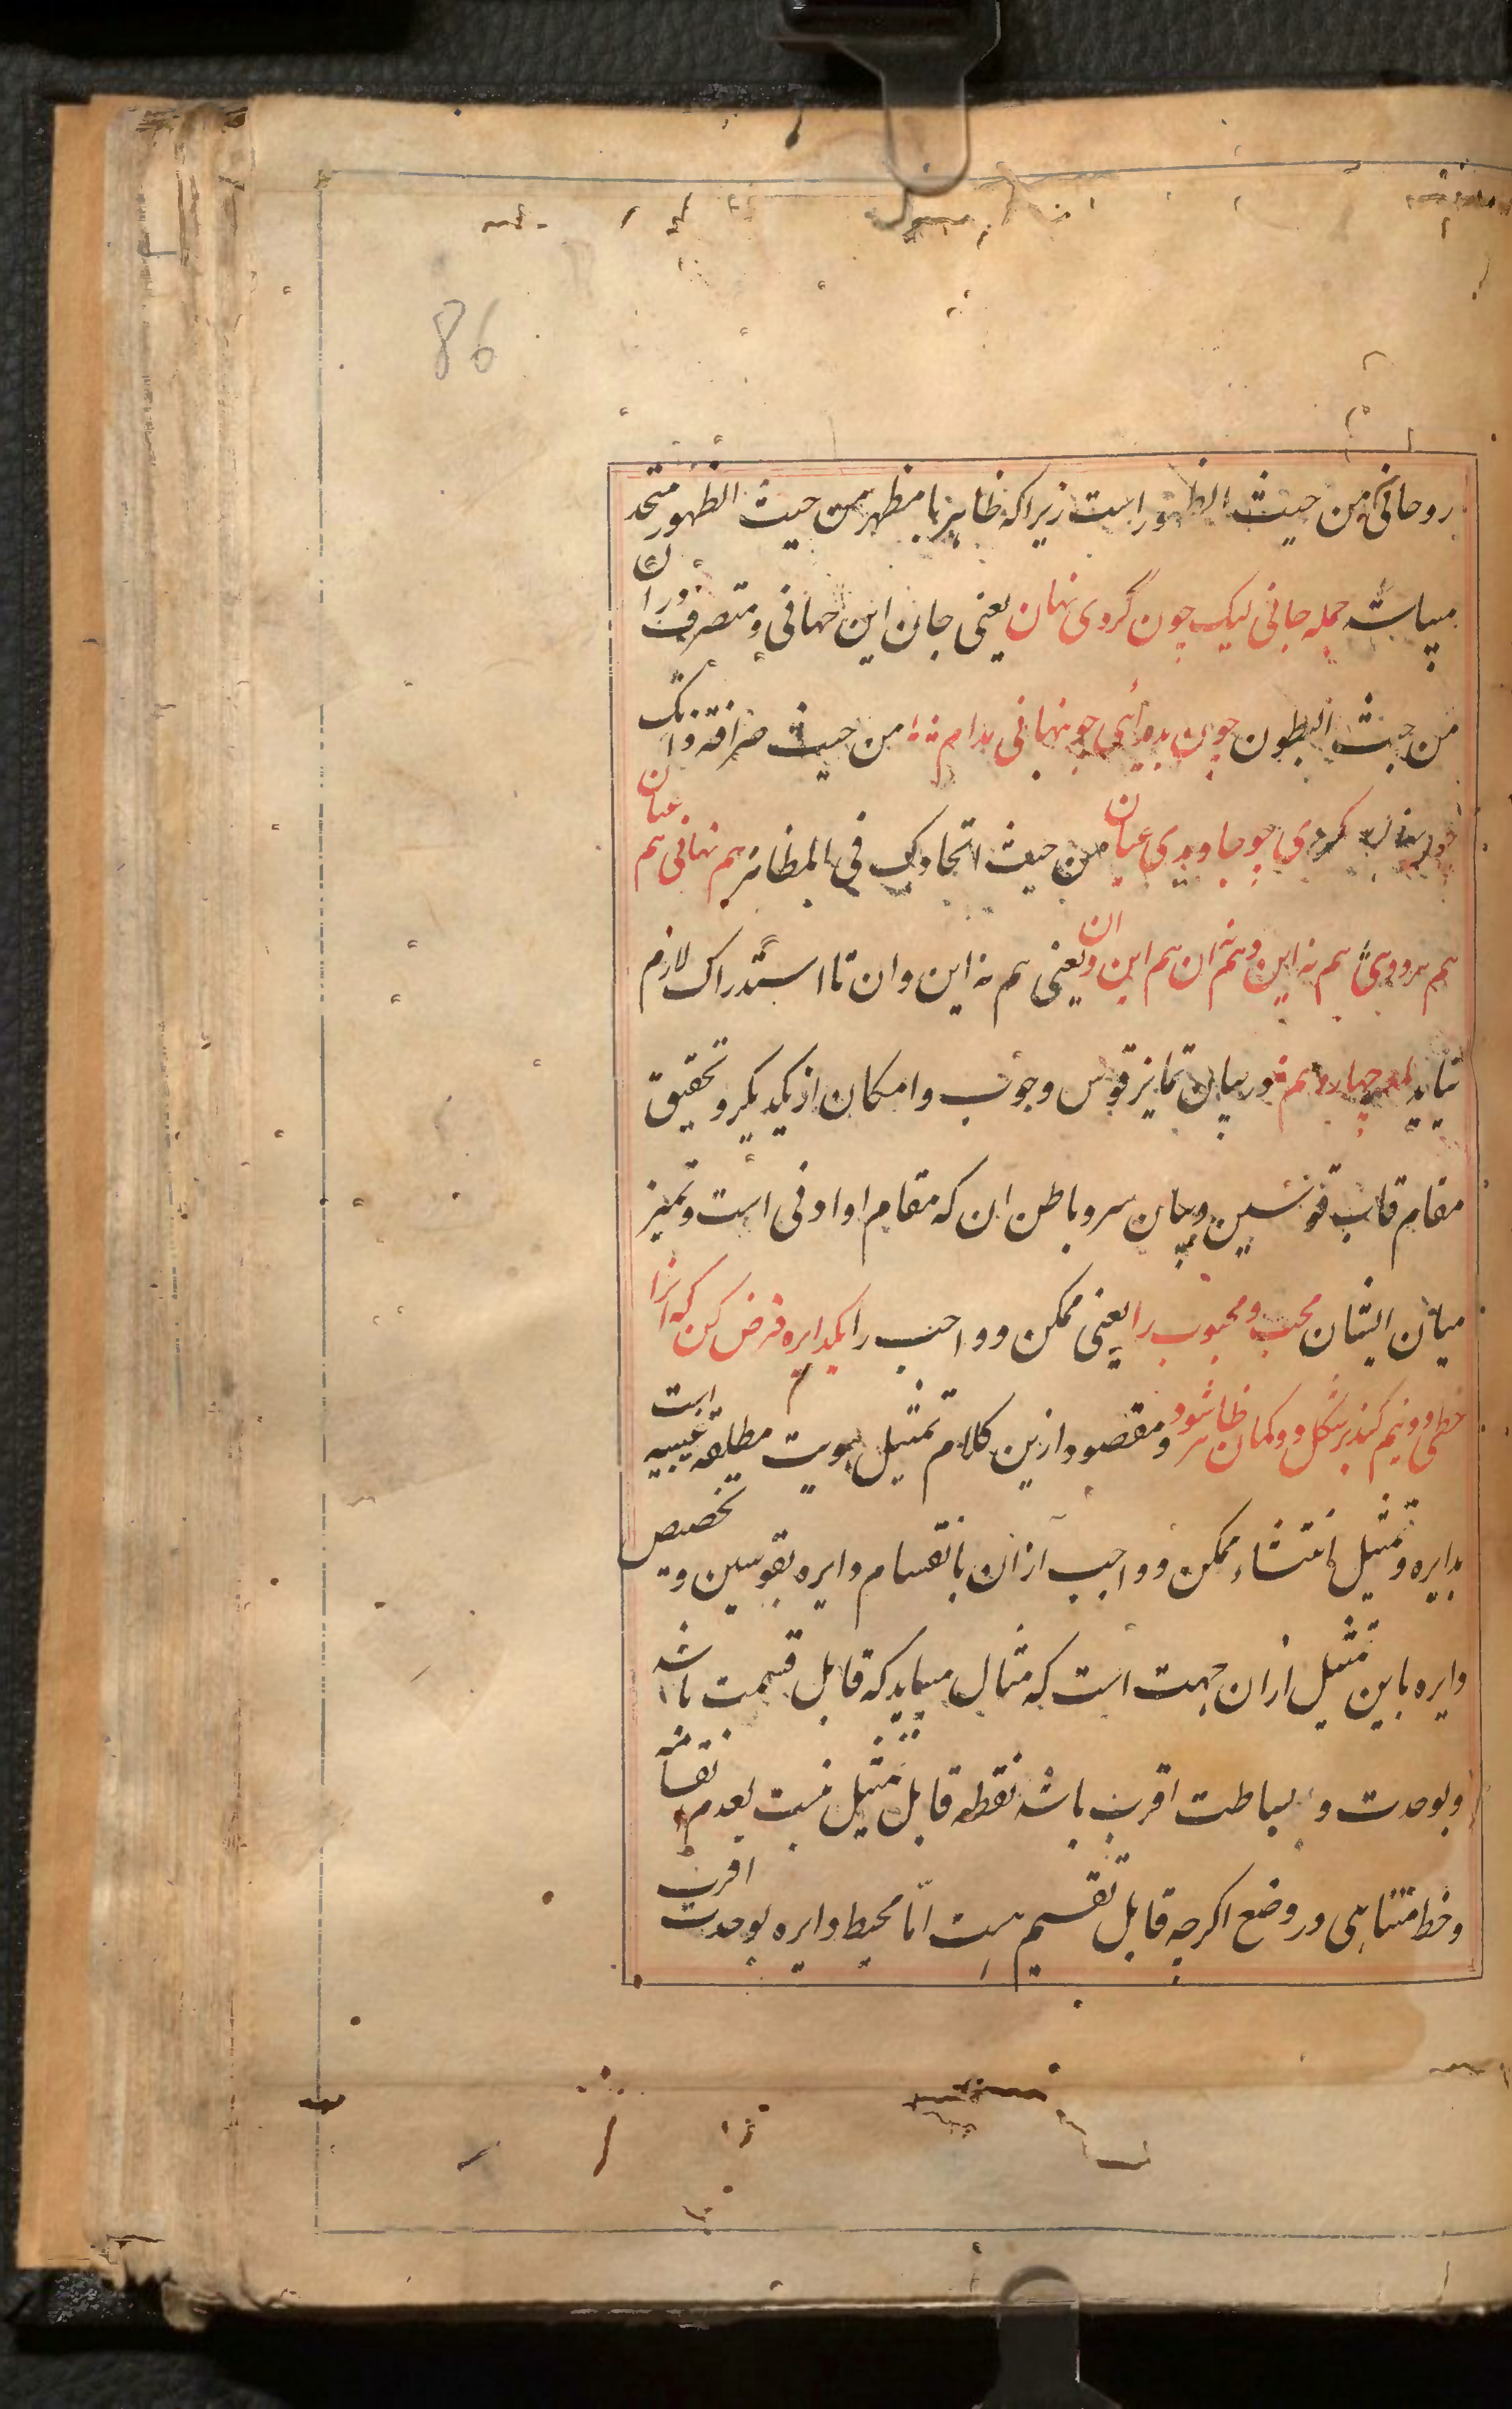 86
روحانی من حیث الظهور است زیراکه ظاهر با مظهر من حیث الظهور متحد
میباشد جمله جانی لیک چون گردی نهان یعنی جان این جهانی و متصرف دران
من حیث البطون چون بدائی چو نهانی مدام من حیث صرافة ذاتک
کردی چو جاویدی عیان من حیث اتحادک فی المظاهر هم نهانی هم عیان
هم هر دوی هم نه این و هم نه ان هم این و ان یعنی هم نه این و ان تا استدراک لازم
نیاید لمعه چهاردهم در بیان تمایز قوس وجوب و امکان از یکدیگر و تحقیق
مقام قاب قوسین و بیان سر و باطن ان که مقام او ادنی است و تمیز
میان ایشان محب و محبوب را یعنی ممکن و واجب را یکدایره فرض کن که انرا
خطی دو نیم کند بر شکل دو کمان ظاهر شود و مقصود ازین کلام تمثیل هویت مطلقه غیبیه است
بدایره و تمثیل انتشاء ممکن و واجب ازان بانقسام دایره بقوسین و تخصیص
دایره باین تمثیل ازان جهت است که مثال میباید که قابل قسمت باشد
و بوحدت و بساطت اقرب باشد نقطه قابل تمثیل نیست بعدم
و خط متناهی در وضع اکرچه قابل تقسیم هست امّا محیط دایره بوحدت اقرب